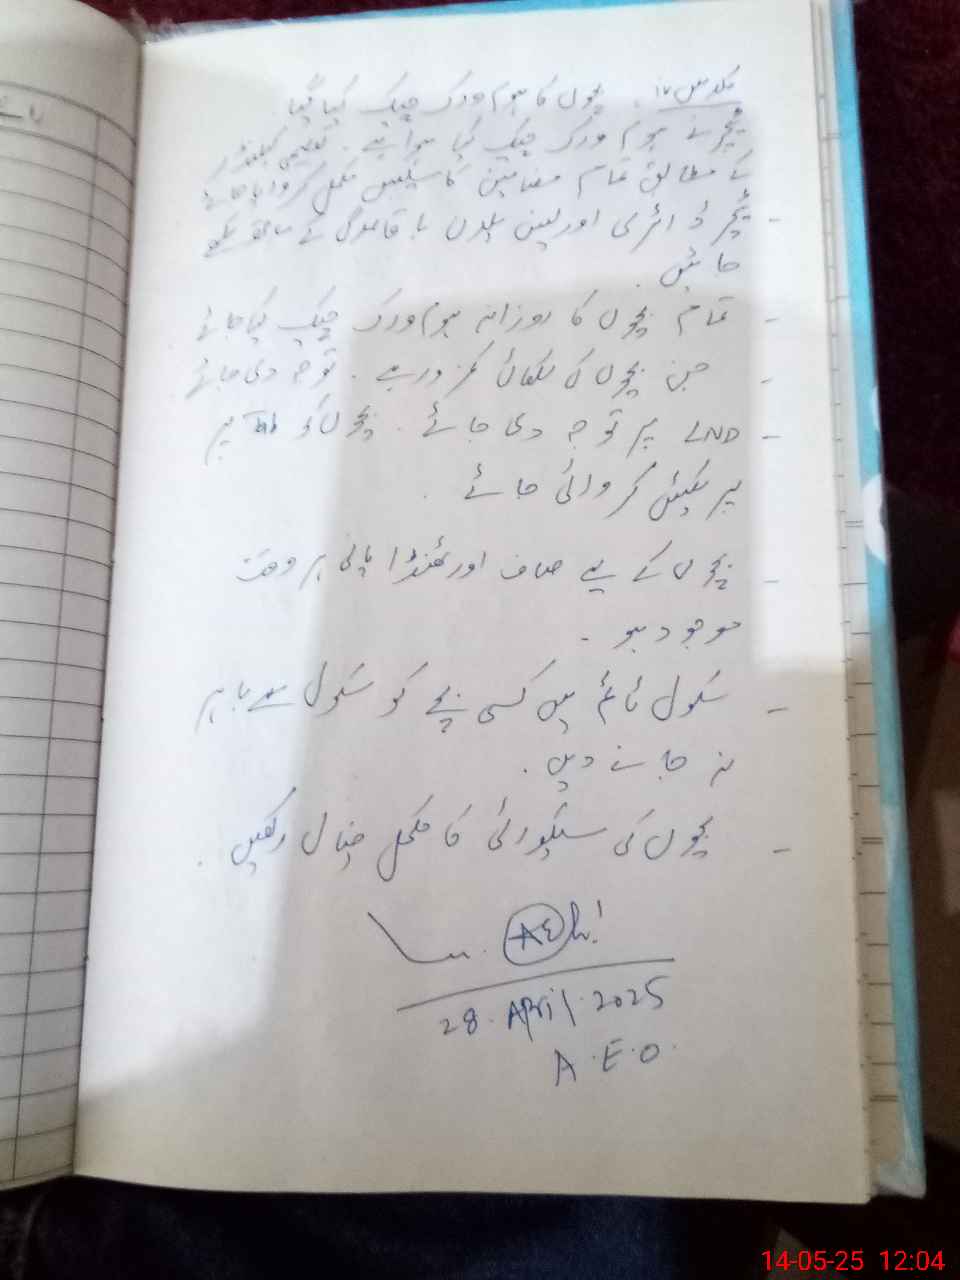 بچوں کا ہوم ورک چیک کیا گیا
ٹیچر نے ہوم ورک چیک کیا ہوا ہے۔ تعلیمی کیلنڈر
کے مطابق تمام مضامین کا سلیبس مکمل کروایا جائے
- ٹیچر ڈائری اور لیسن پلان باقاعدگی کے ساتھ لکھے
جائیں
- تمام بچوں کا روزانہ ہوم ورک چیک کیا جائے
- جن بچوں کی لکھائی کمزور ہے۔ توجہ دی جائے
- LND پر توجہ دی جائے۔ بچوں کو پر
پریکٹس کروائی جائے۔
- بچوں کے لیے صاف اور ٹھنڈا پانی ہر وقت
موجود ہو۔
- سکول ٹائم میں کسی بچے کو سکول سے باہر
نہ جانے دیں۔
- بچوں کی سیکورٹی کا مکمل خیال رکھیں۔
28. April. 2025
A.E.O.
14-05-25 12:04